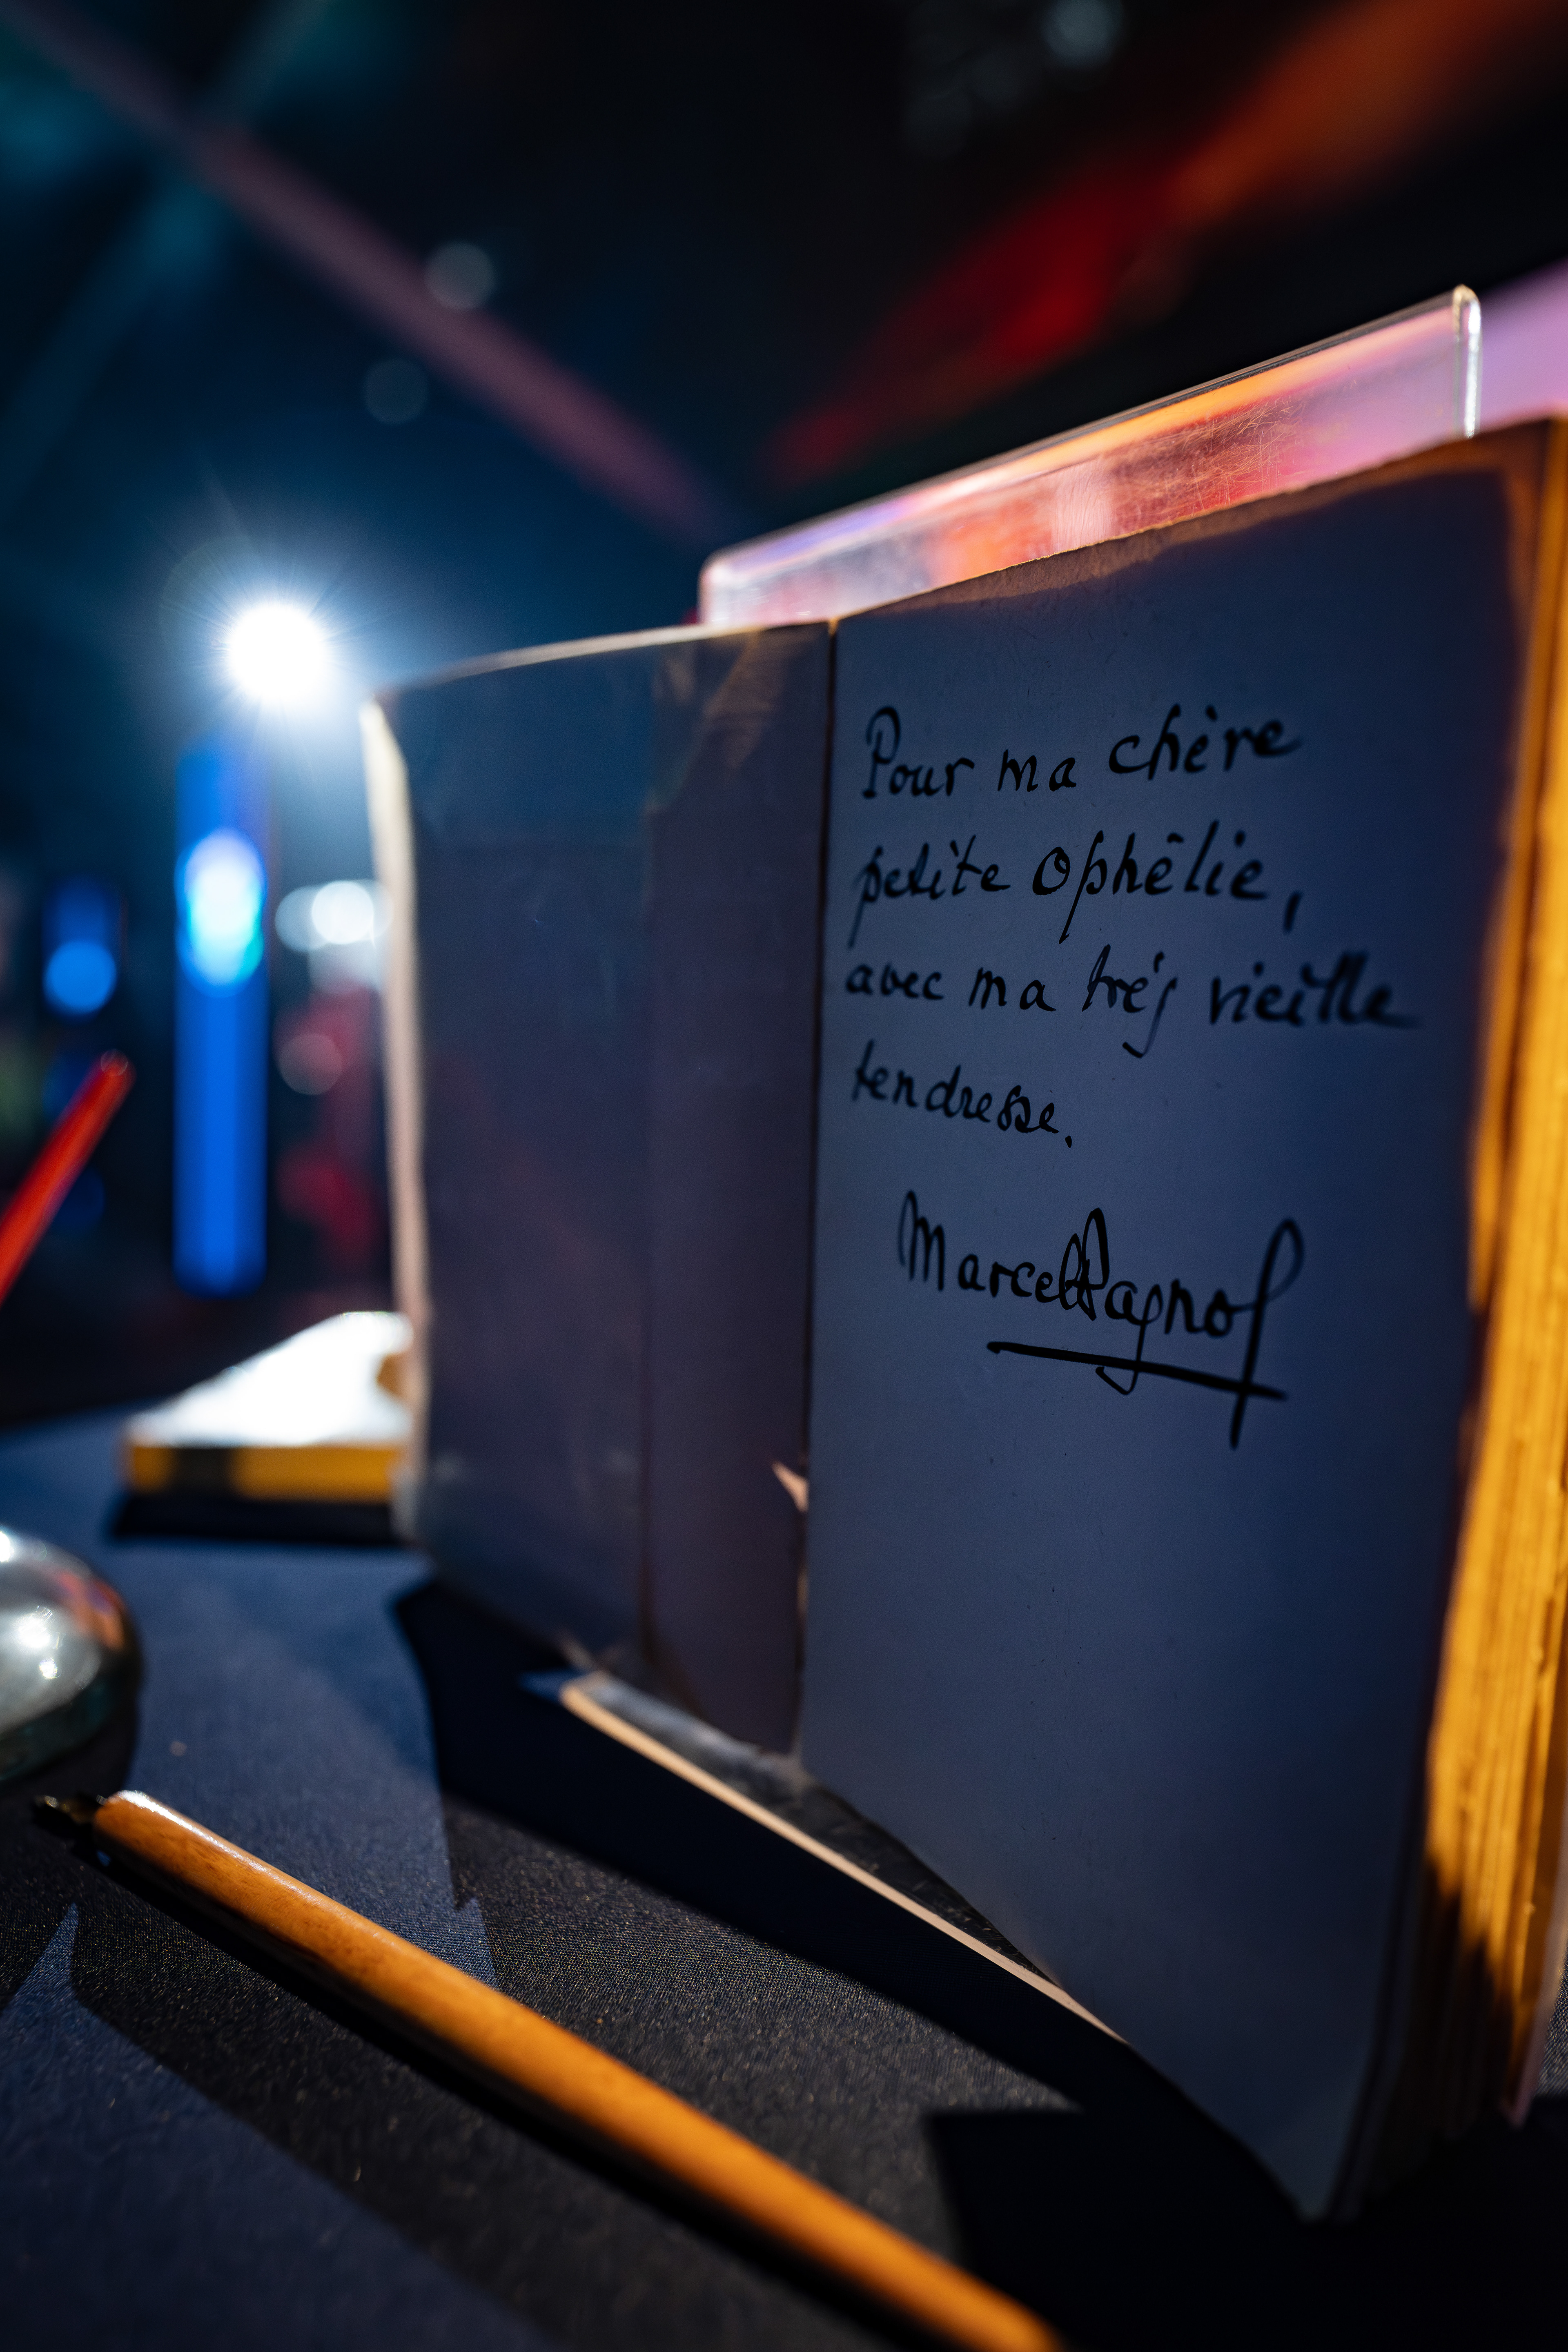 Pour ma chère
petite Ophélie,
avec ma très vieille
tendresse.
Marcel Pagnol